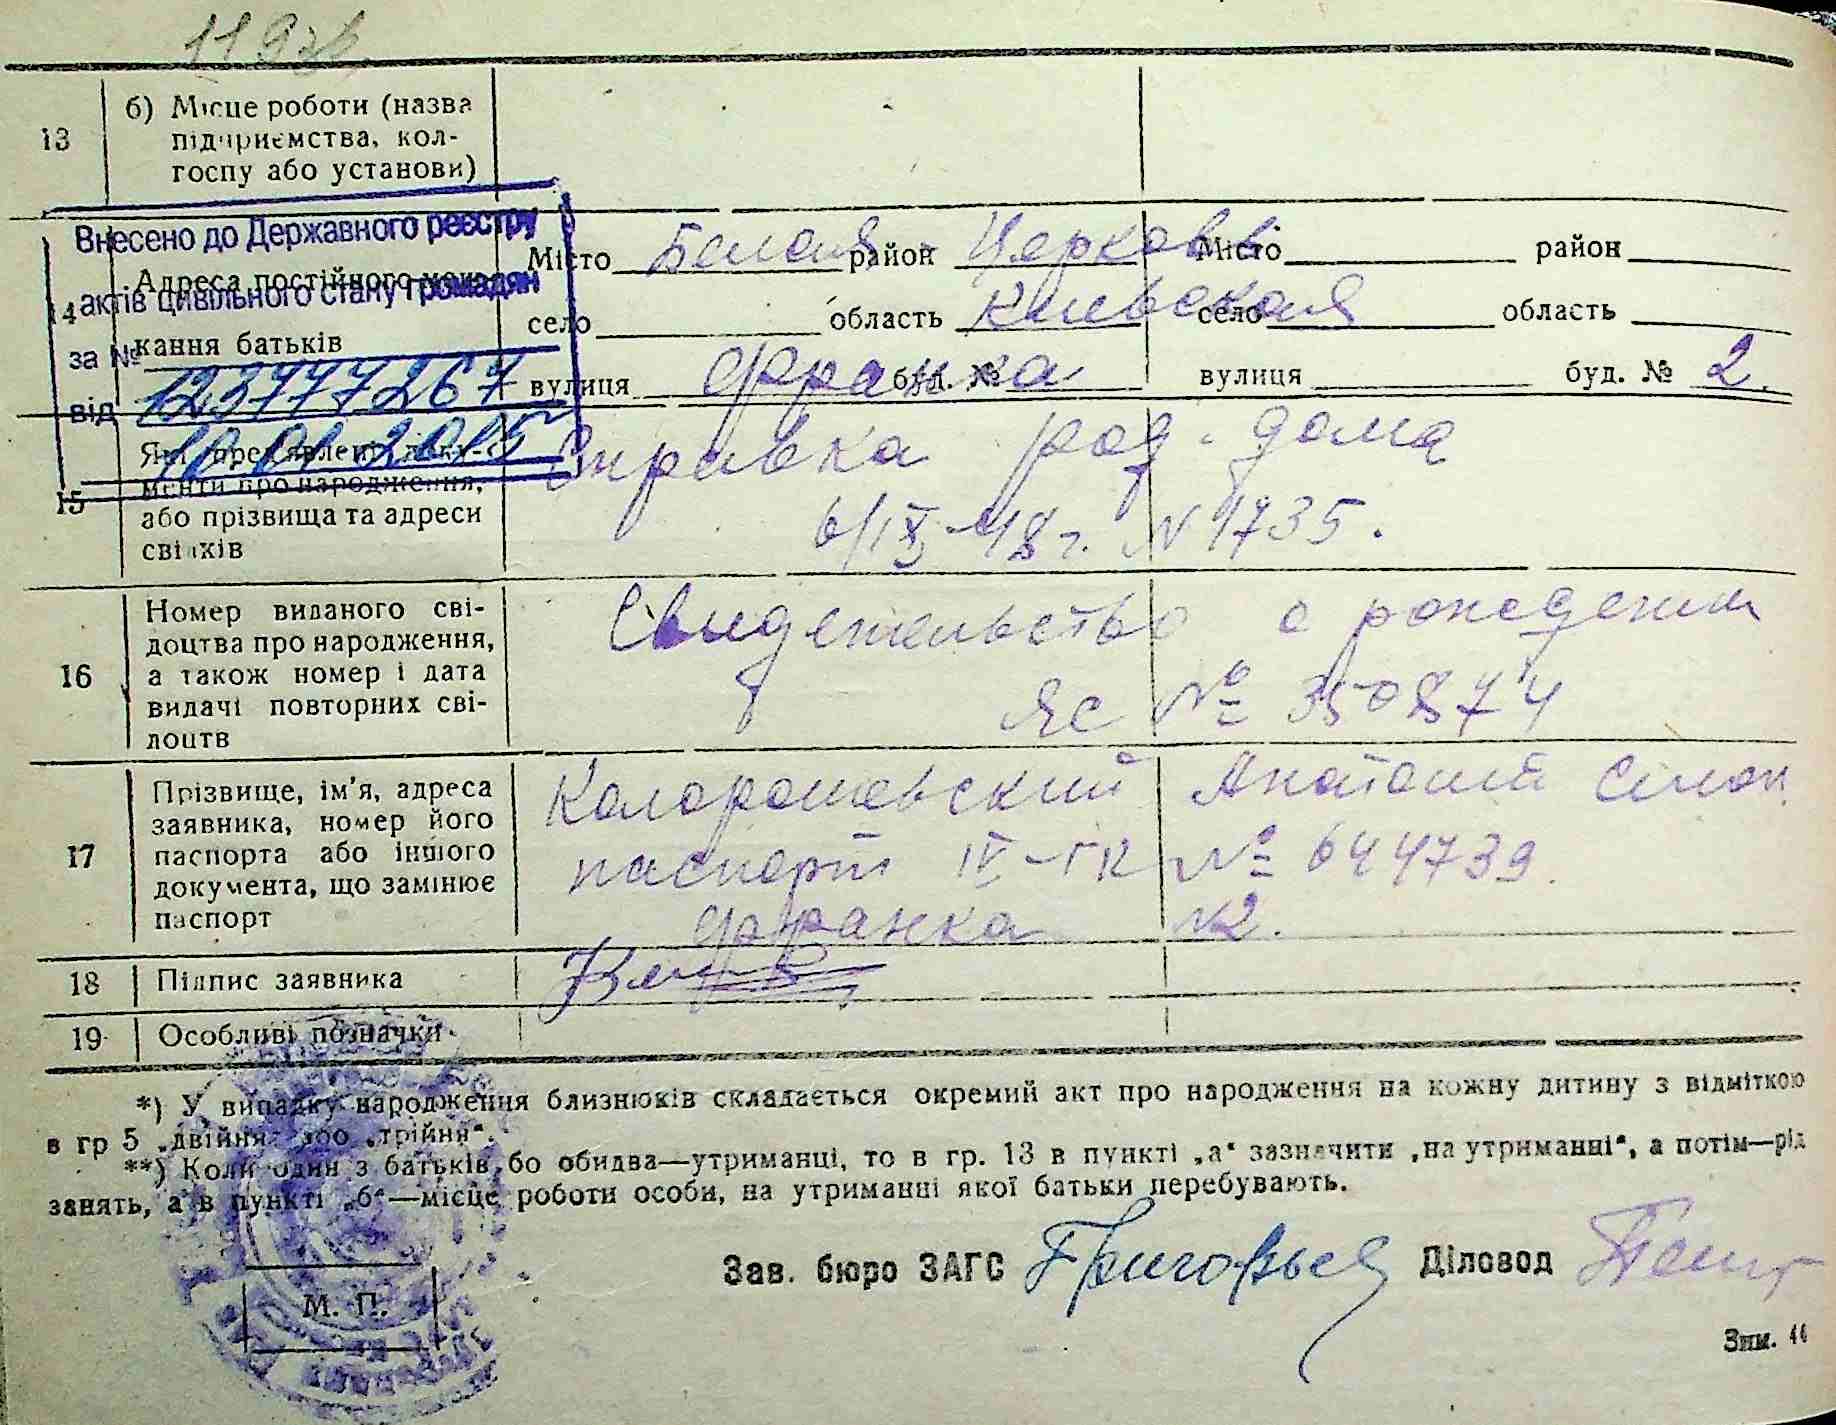 13
б) Місце роботи (назва
підприємства, кол-
госпу або установи)
Внесено до Державного реєстру
актів цивільного стану громадян
за №
123777267
від 10 01 2015
14
Адреса постійного
кання батьків
Місто Белая район Церковь Місто район
село область Киевская село область
вулиця Франка буд. № вулиця буд. № 2.
15
Які пред'явлені доку-
менти про народження,
або прізвища та адреси
свідків
Справка род. дома
6/IX-48 г. N 1735.
16
Номер виданого сві-
доцтва про народження,
а також номер і дата
видачі повторних сві-
доцтв
Свидетельство о рождении
ЯС № 350874
17
Прізвище, ім'я, адреса
заявника, номер його
паспорта або іншого
документа, що замінює
паспорт
Анатолий Симон.
паспорт IV-ГК № 644739.
Франка N2.
18 Підпис заявника
19 Особливі позначки
*) У випадку народження близнюків складається окремий акт про народження на кожну дитину з відміткою
в гр 5 „двійня" або „трійня".
**) Коли один з батьків бо обидва—утриманці, то в гр. 13 в пункті „а" зазначити „на утриманні", а потім—рід
занять, а в пункті „б"—місце роботи особи, на утриманні якої батьки перебувають.
Зав. бюро ЗАГС Григорьев Діловод
М. П.
Зим. 44